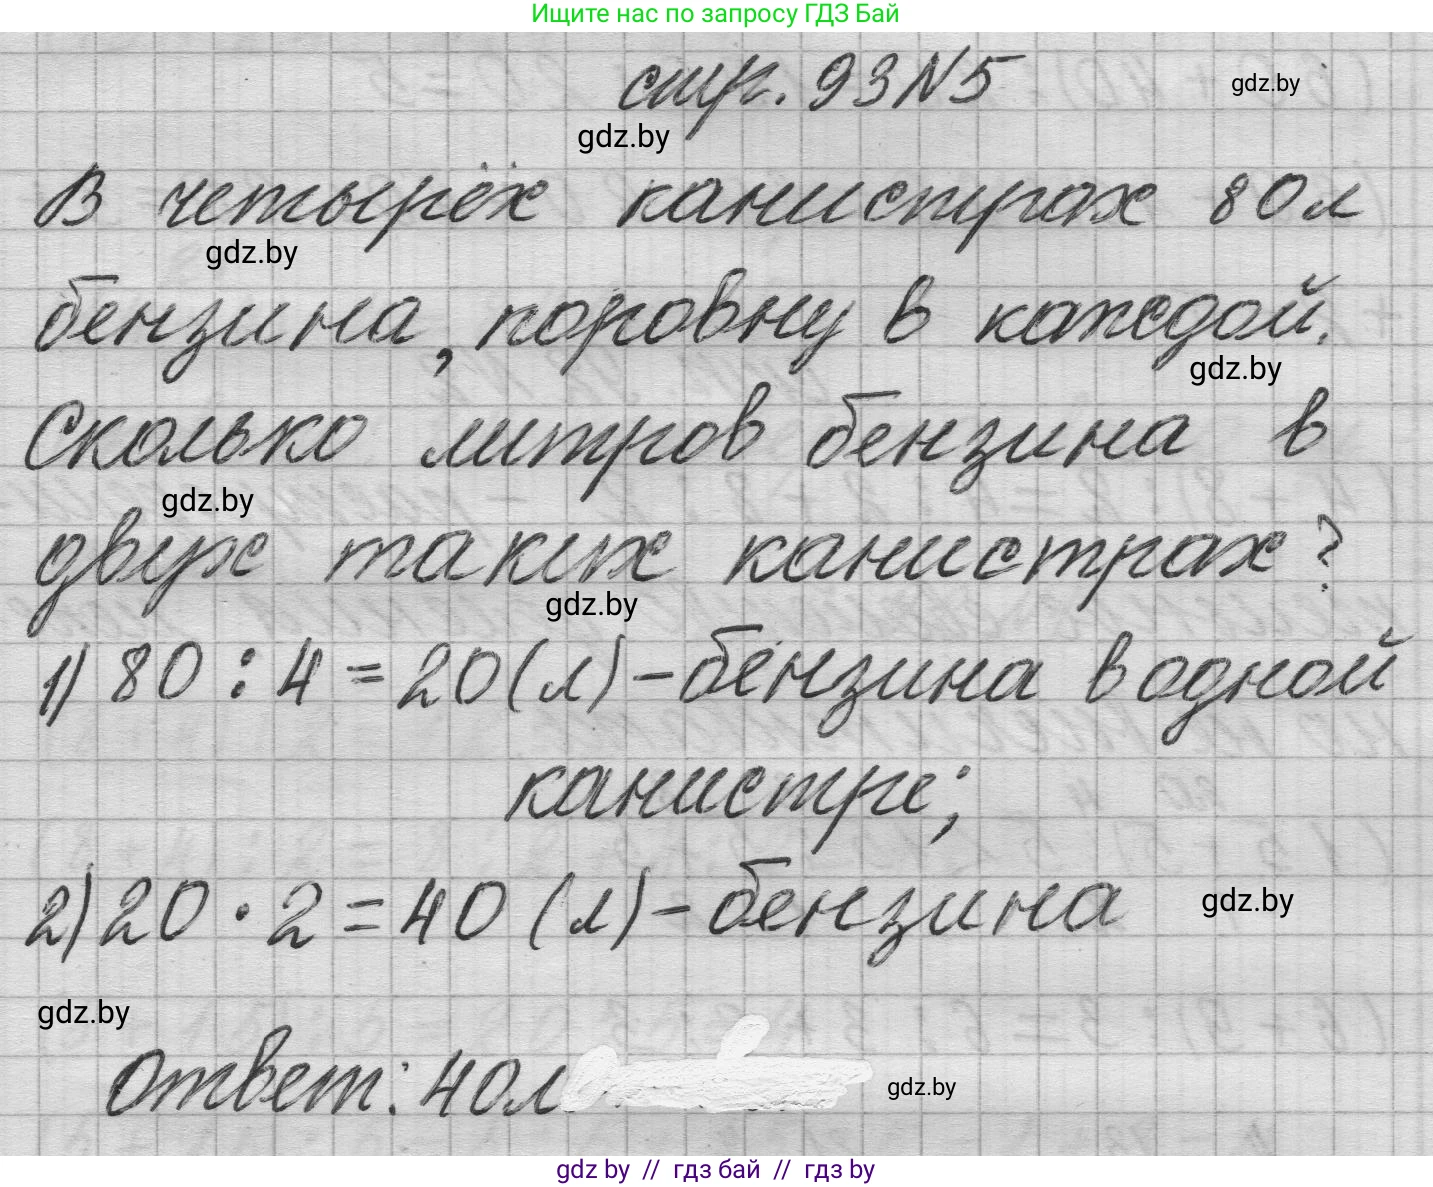 Ищите нас по запросу ГДЗ Бай
стр. 93 N5
gdz.by
gdz.by
В четырёх канистрах 80л
gdz.by
бензина, поровну в каждой.
gdz.by
Сколько литров бензина в
gdz.by
двух таких канистрах?
gdz.by
1) 80 : 4 = 20 (л) – бензина в одной
канистре;
2) 20 · 2 = 40 (л) – бензина
gdz.by
gdz.by
Ответ: 40л
gdz.by
gdz by // гдз бай // гдз by